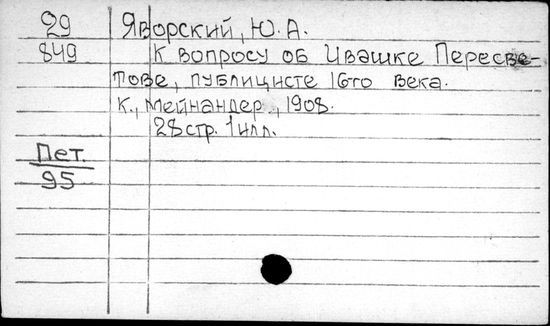 29 Яворский, Ю. А.
849 К вопросу об Ивашке Пересве-
тове, публицисте 16го века.
К., Мейнандер, 1908.
28 стр. 1 илл.
Пет.
95